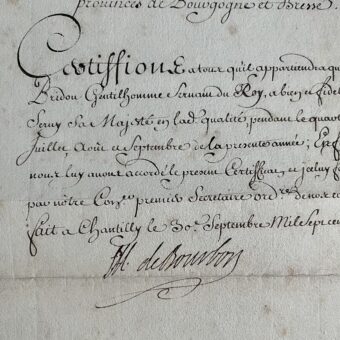 provinces de Bourgogne et Bresse.
Certiffions a tous qu'il appartiendra qu
Bridou Gentilhomme servant du Roy, a bien et fidel
Servy Sa Majesté en lad. qualité, pendant le quart
Juillet, Aoust et Septembre de la presente année; En f
nous luy avons accordé le present Certifficat, et iceluy f
par nôtre Coner. premier Secretaire ordre. de nos com
fait a Chantilly le 30e. Septembre Mil Sept cen
de Bourbon